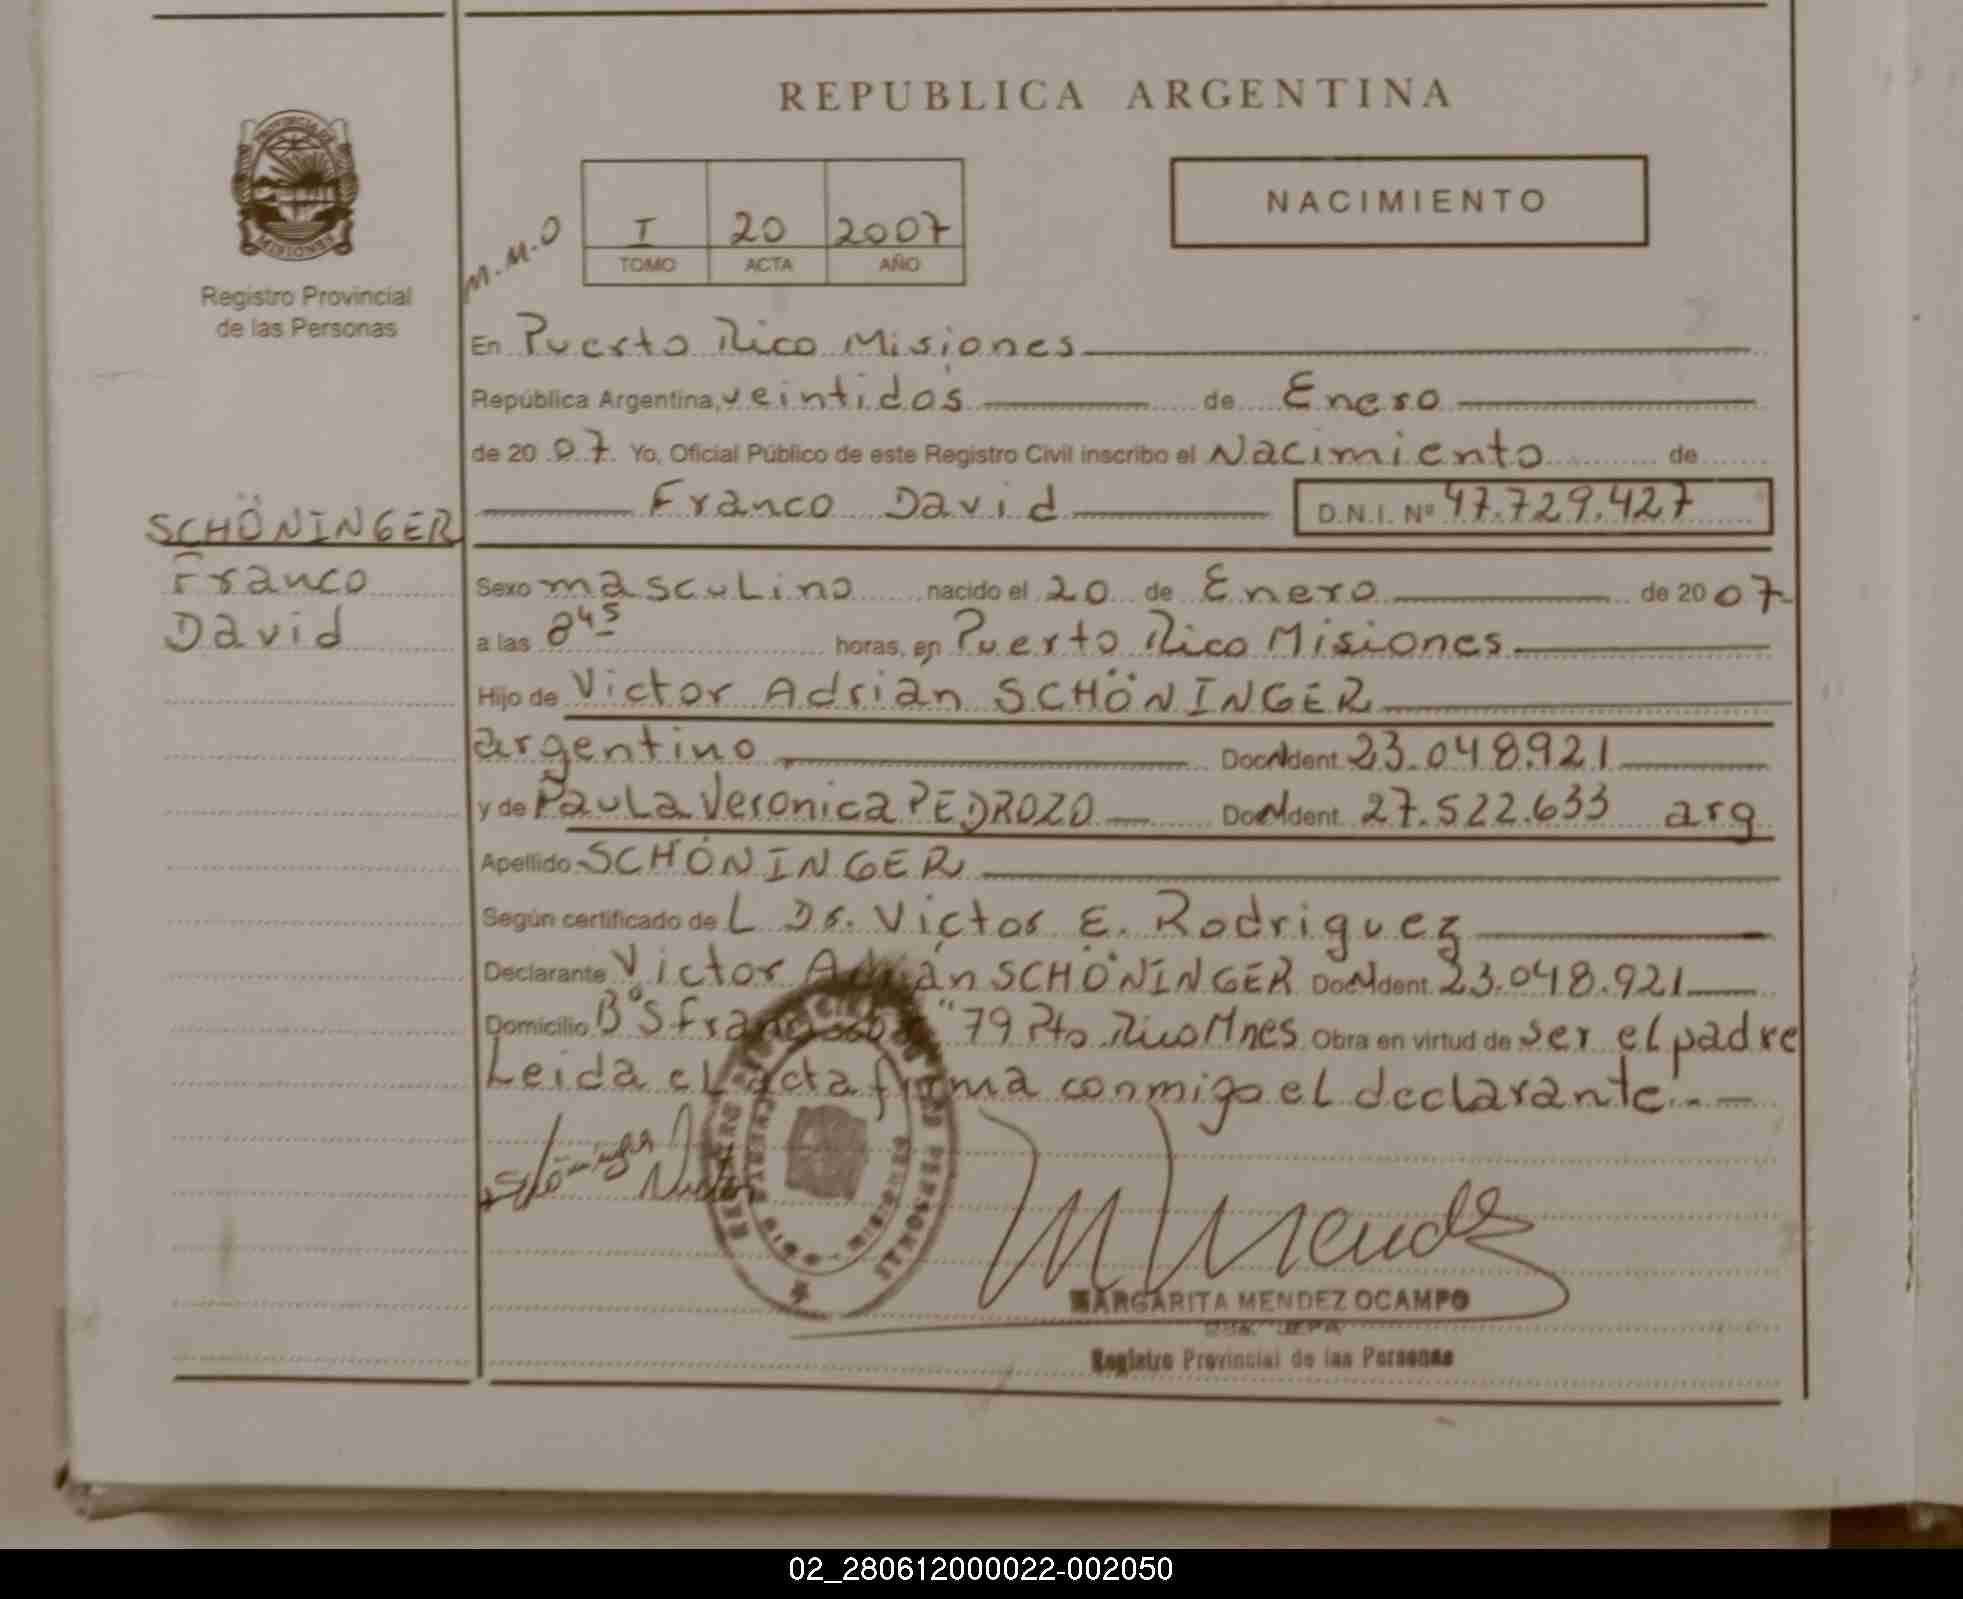 REPUBLICA ARGENTINA
PROVINCIA DE
MISIONES
Registro Provincial
de las Personas
NACIMIENTO
M.M.O
I 20 2007
TOMO ACTA AÑO
En Puerto Rico Misiones
República Argentina, veintidos de Enero
de 20 07 Yo, Oficial Público de este Registro Civil inscribo el Nacimiento de
Franco David D.N.I. Nº 47.729.427
SCHÖNINGER
Franco
David
Sexo masculino nacido el 20 de Enero de 20 07
a las 8 45 horas, en Puerto Rico Misiones
Hijo de Victor Adrian SCHÖNINGER
argentino Doc. Ident. 23.048.921
y de Paula Veronica PEDROZO Doc. Ident. 27.522.633 arg
Apellido SCHÖNINGER
Según certificado de L Dr. Victor E. Rodriguez
Declarante Victor Adrián SCHÖNINGER Doc. Ident. 23.048.921
Domicilio Bº S Francisco "79 Pto Rico Mnes Obra en virtud de ser el padre
Leida el acta firma conmigo el declarante.
Schöninger
MARGARITA MENDEZ OCAMPO
Registro Provincial de las Personas
02_280612000022-002050